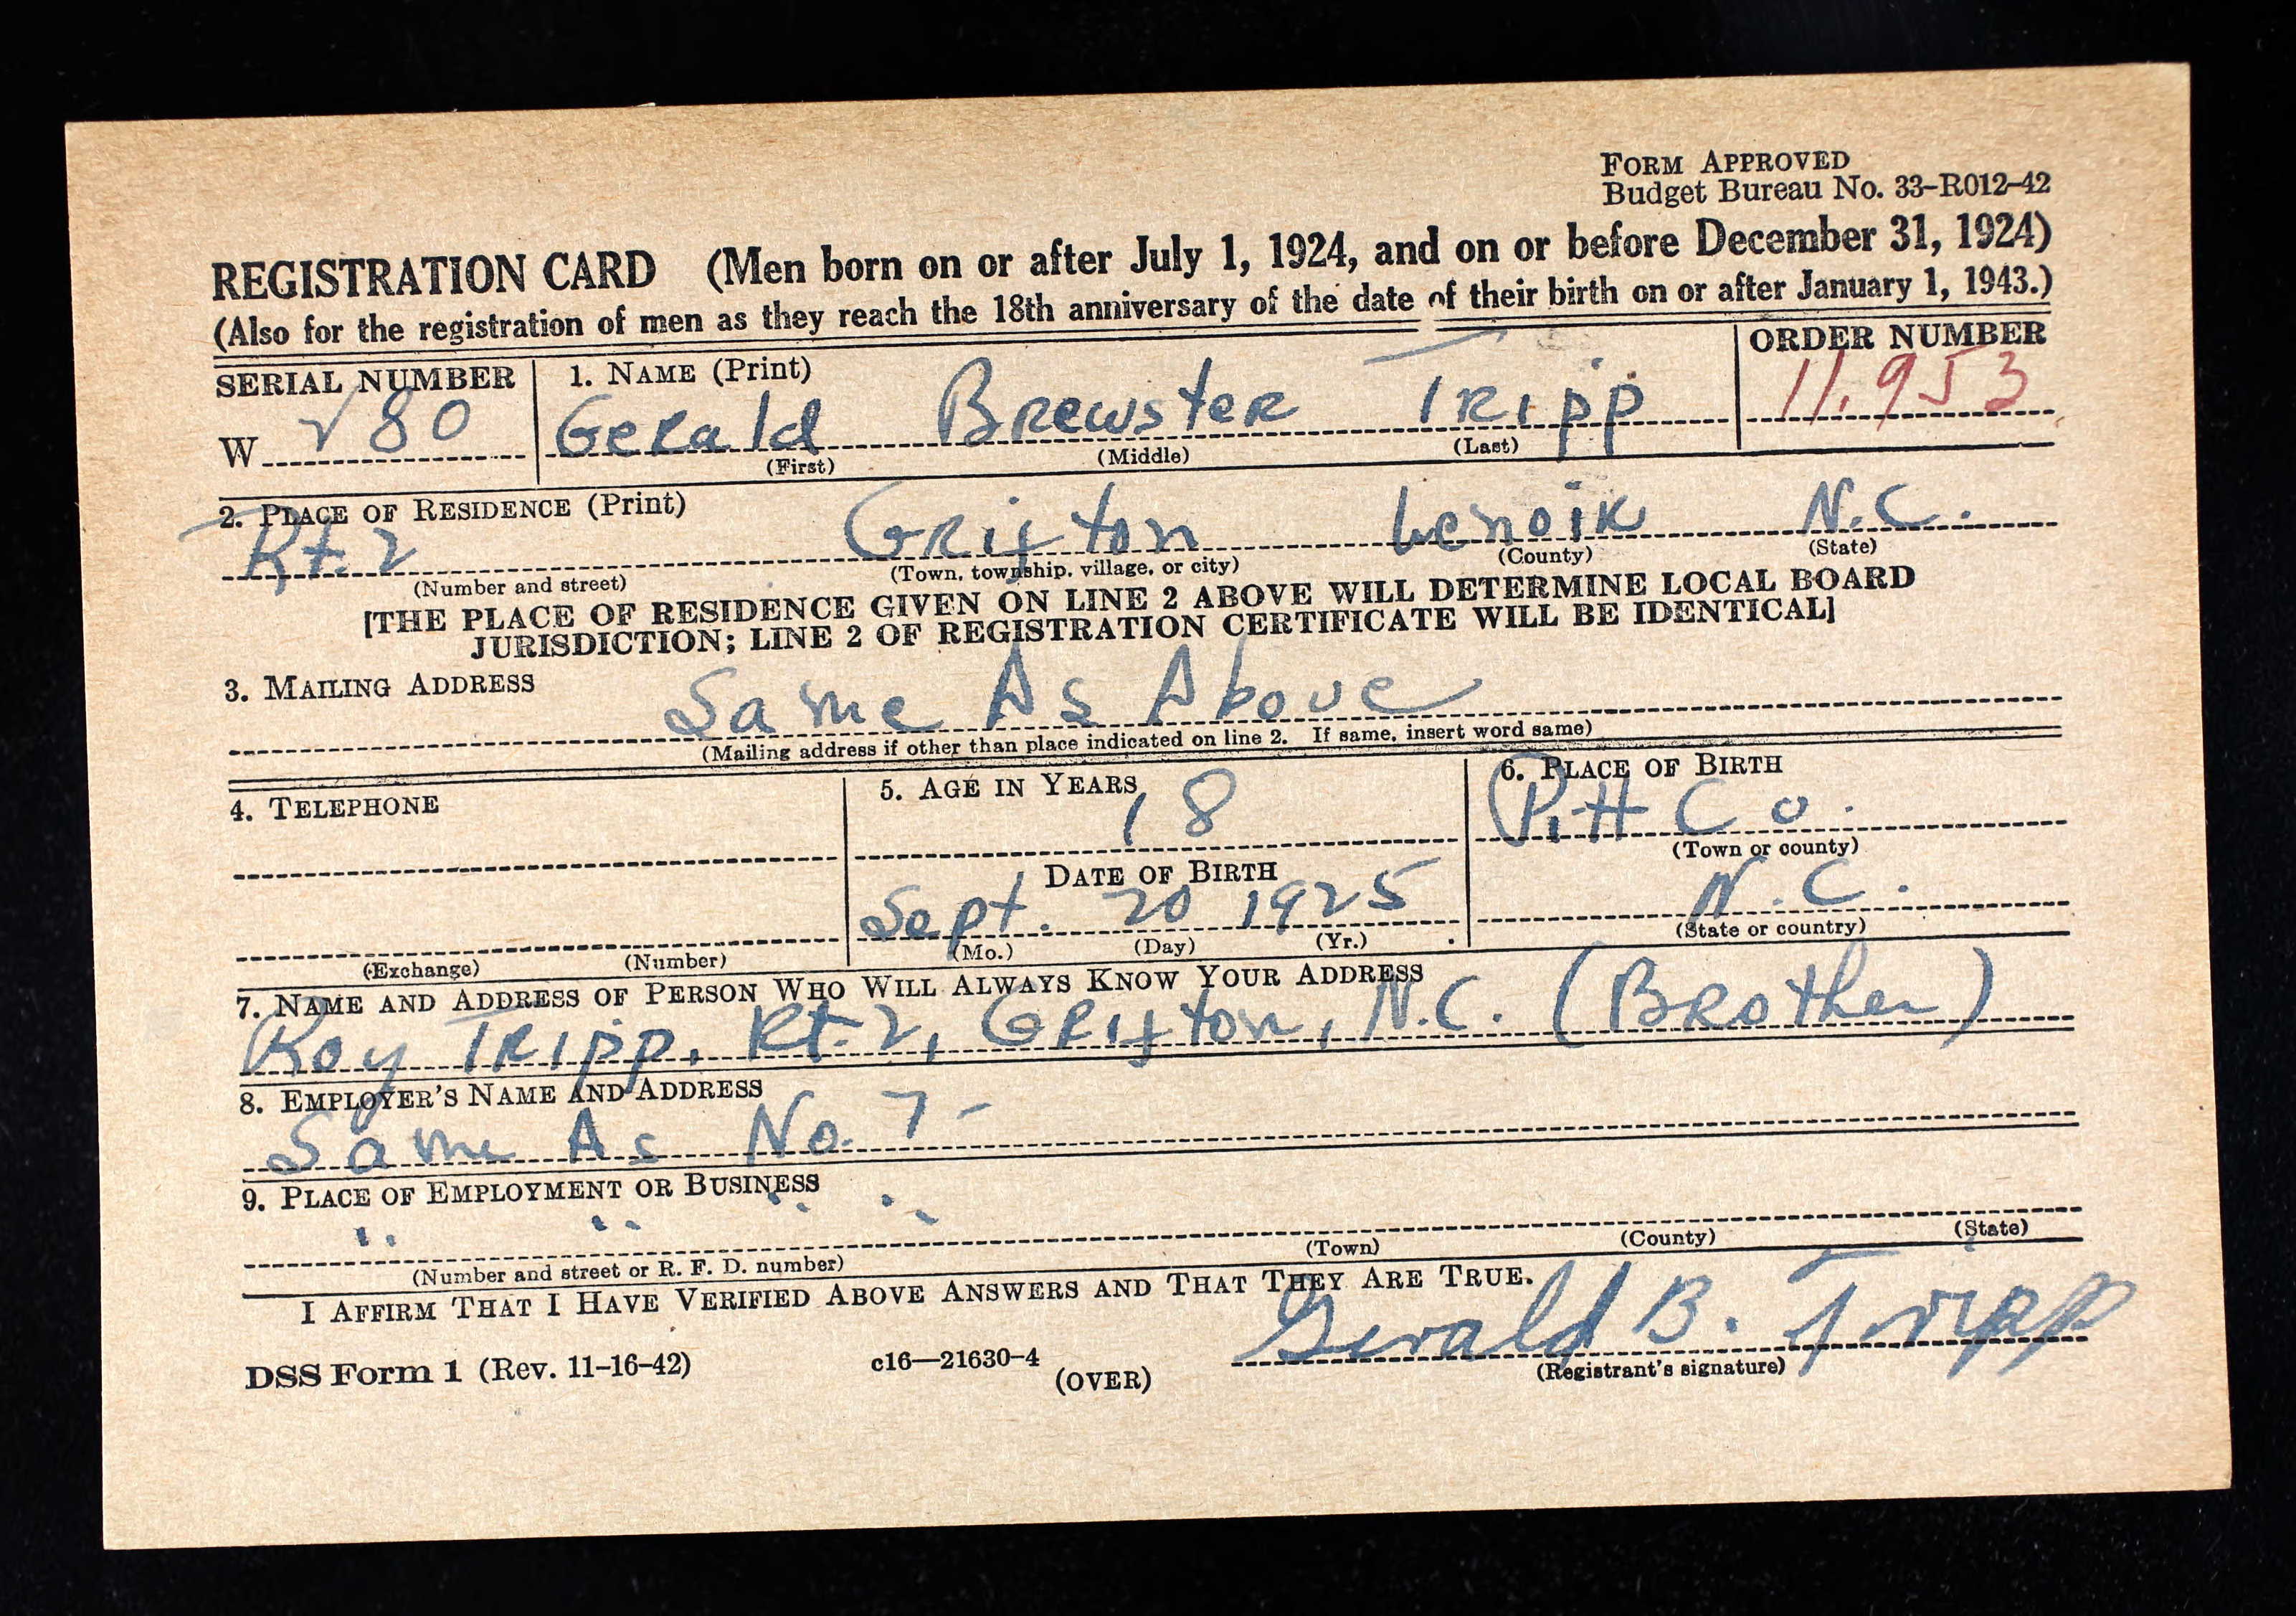 FORM APPROVED
Budget Bureau No. 33-R012-42
REGISTRATION CARD (Men born on or after July 1, 1924, and on or before December 31, 1924)
(Also for the registration of men as they reach the 18th anniversary of the date of their birth on or after January 1, 1943.)
SERIAL NUMBER 1. NAME (Print) ORDER NUMBER
W 280 Gerald Brewster Tripp 11,953
(First) (Middle) (Last)
2. PLACE OF RESIDENCE (Print)
Rt. 2 Grifton Lenoir N.C.
(Number and street) (Town, township, village, or city) (County) (State)
[THE PLACE OF RESIDENCE GIVEN ON LINE 2 ABOVE WILL DETERMINE LOCAL BOARD
JURISDICTION; LINE 2 OF REGISTRATION CERTIFICATE WILL BE IDENTICAL]
3. MAILING ADDRESS
Same As Above
(Mailing address if other than place indicated on line 2. If same, insert word same)
4. TELEPHONE 5. AGE IN YEARS 6. PLACE OF BIRTH
18 Pitt Co.
(Town or county)
DATE OF BIRTH
Sept. 20 1925 N.C.
(Exchange) (Number) (Mo.) (Day) (Yr.) (State or country)
7. NAME AND ADDRESS OF PERSON WHO WILL ALWAYS KNOW YOUR ADDRESS
Roy Tripp, Rt. 2, Grifton, N.C. (Brother)
8. EMPLOYER'S NAME AND ADDRESS
Same As No. 7-
9. PLACE OF EMPLOYMENT OR BUSINESS
" " " "
(Number and street or R. F. D. number) (Town) (County) (State)
I AFFIRM THAT I HAVE VERIFIED ABOVE ANSWERS AND THAT THEY ARE TRUE.
Gerald B. Tripp
DSS Form 1 (Rev. 11-16-42) c16—21630-4 (OVER) (Registrant's signature)